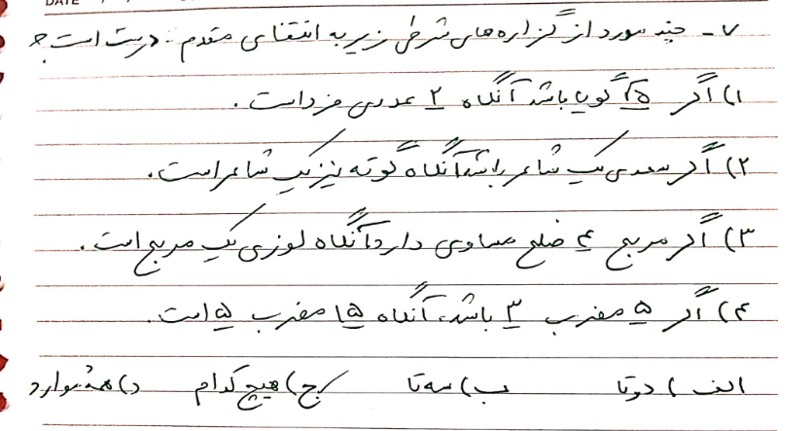 DATE
۷- چند مورد از گزاره‌های شرطی زیر به انتفای مقدم درست است؟
۱) اگر √۵ گویا باشد آنگاه ۲ عددی فرد است.
۲) اگر سعدی یک شاعر باشد آنگاه گوته نیز یک شاعر است.
۳) اگر مربع ۴ ضلع مساوی دارد آنگاه لوزی یک مربع است.
۴) اگر ۵ مضرب ۳ باشد، آنگاه ۱۵ مضرب ۵ است.
الف) دوتا ب) سه تا ج) هیچ کدام د) همه موارد